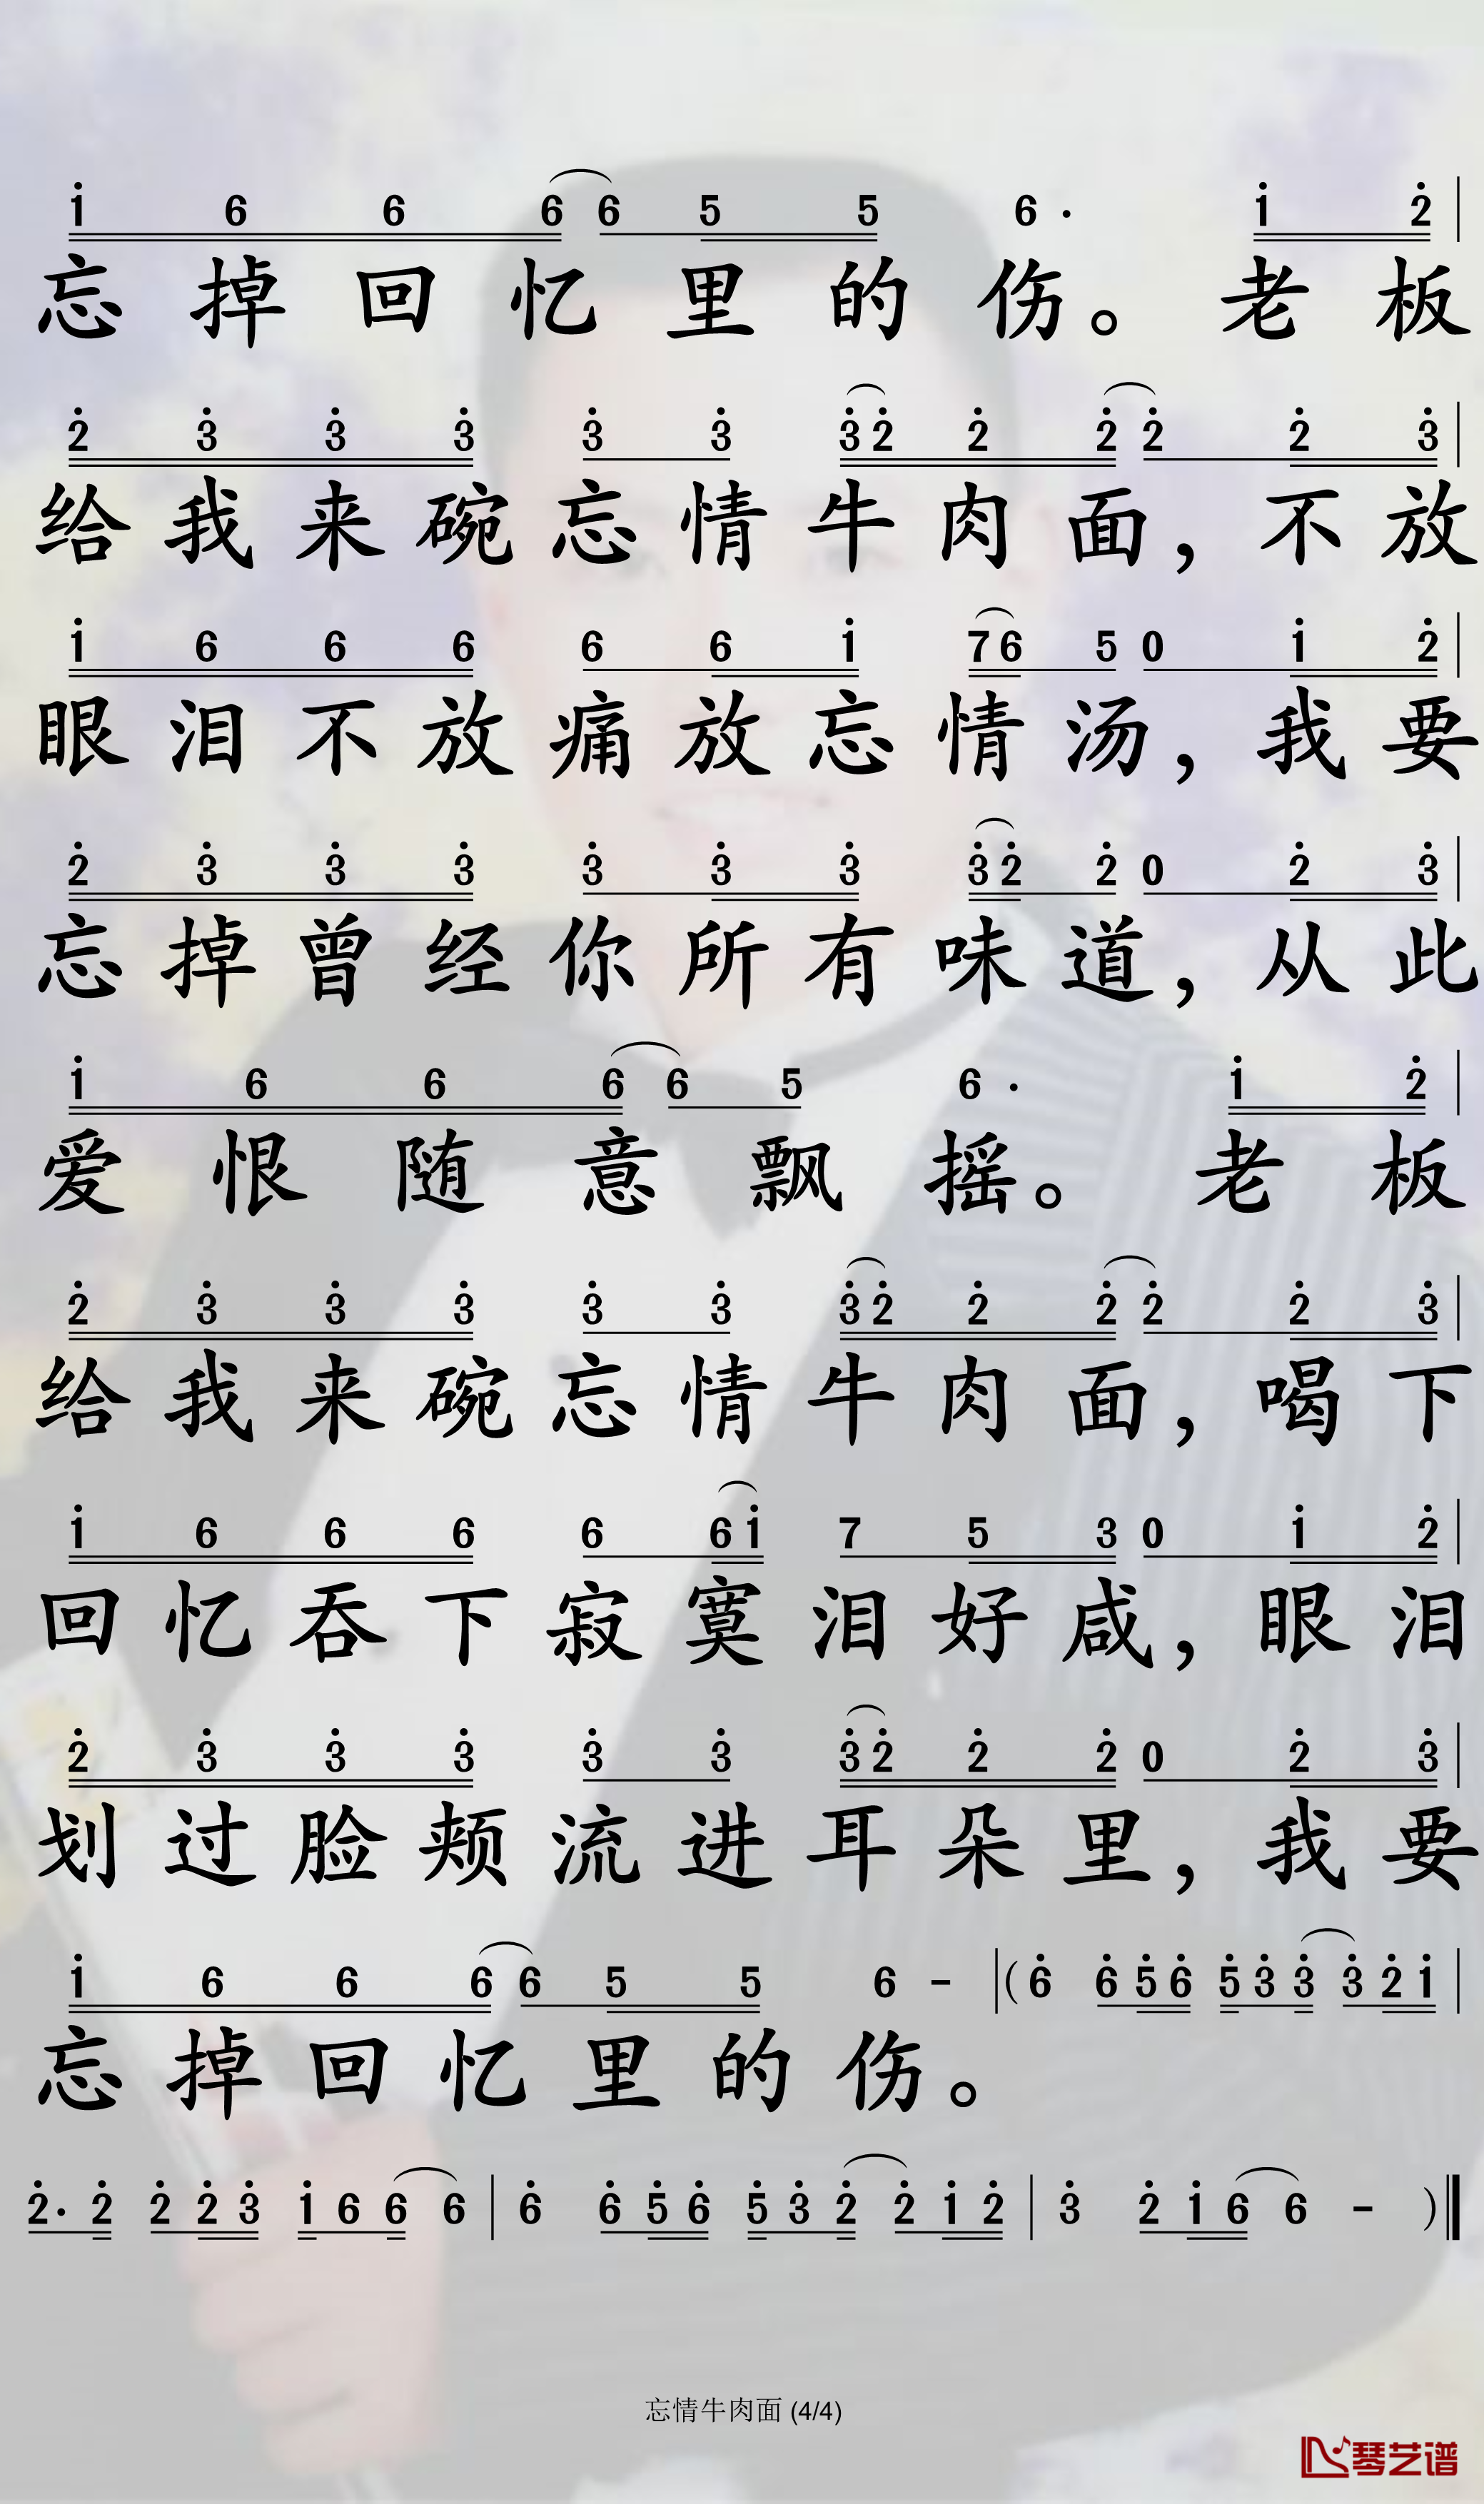 i̇ 6 6 6 6 5 5 6 · i̇ 2̇ |
忘掉回忆里的伤。老板
2̇ 3̇ 3̇ 3̇ 3̇ 3̇ 3̇ 2̇ 2̇ 2̇ 2̇ 2̇ 3̇ |
给我来碗忘情牛肉面，不放
1̇ 6 6 6 6 6 1̇ 7 6 5 0 1̇ 2̇ |
眼泪不放痛放忘情汤，我要
2̇ 3̇ 3̇ 3̇ 3̇ 3̇ 3̇ 3̇ 2̇ 2̇ 0 2̇ 3̇ |
忘掉曾经你所有味道，从此
1̇ 6 6 6 6 5 6 · 1̇ 2̇ |
爱恨随意飘摇。老板
2̇ 3̇ 3̇ 3̇ 3̇ 3̇ 3̇ 2̇ 2̇ 2̇ 2̇ 2̇ 3̇ |
给我来碗忘情牛肉面，喝下
1̇ 6 6 6 6 6 1̇ 7 5 3 0 1̇ 2̇ |
回忆吞下寂寞泪好咸，眼泪
2̇ 3̇ 3̇ 3̇ 3̇ 3̇ 3̇ 2̇ 2̇ 2̇ 0 2̇ 3̇ |
划过脸颊流进耳朵里，我要
1̇ 6 6 6 6 5 5 6 - | ( 6̇ 6̇ 5̇ 6̇ 5̇ 3̇ 3̇ 3̇ 2̇ 1̇ |
忘掉回忆里的伤。
2̇ · 2̇ 2̇ 2̇ 3̇ 1̇ 6 6 6 | 6̇ 6̇ 5̇ 6̇ 5̇ 3̇ 2̇ 2̇ 1̇ 2̇ | 3̇ 2̇ 1̇ 6 6 - ) ‖
忘情牛肉面 (4/4)
琴艺谱